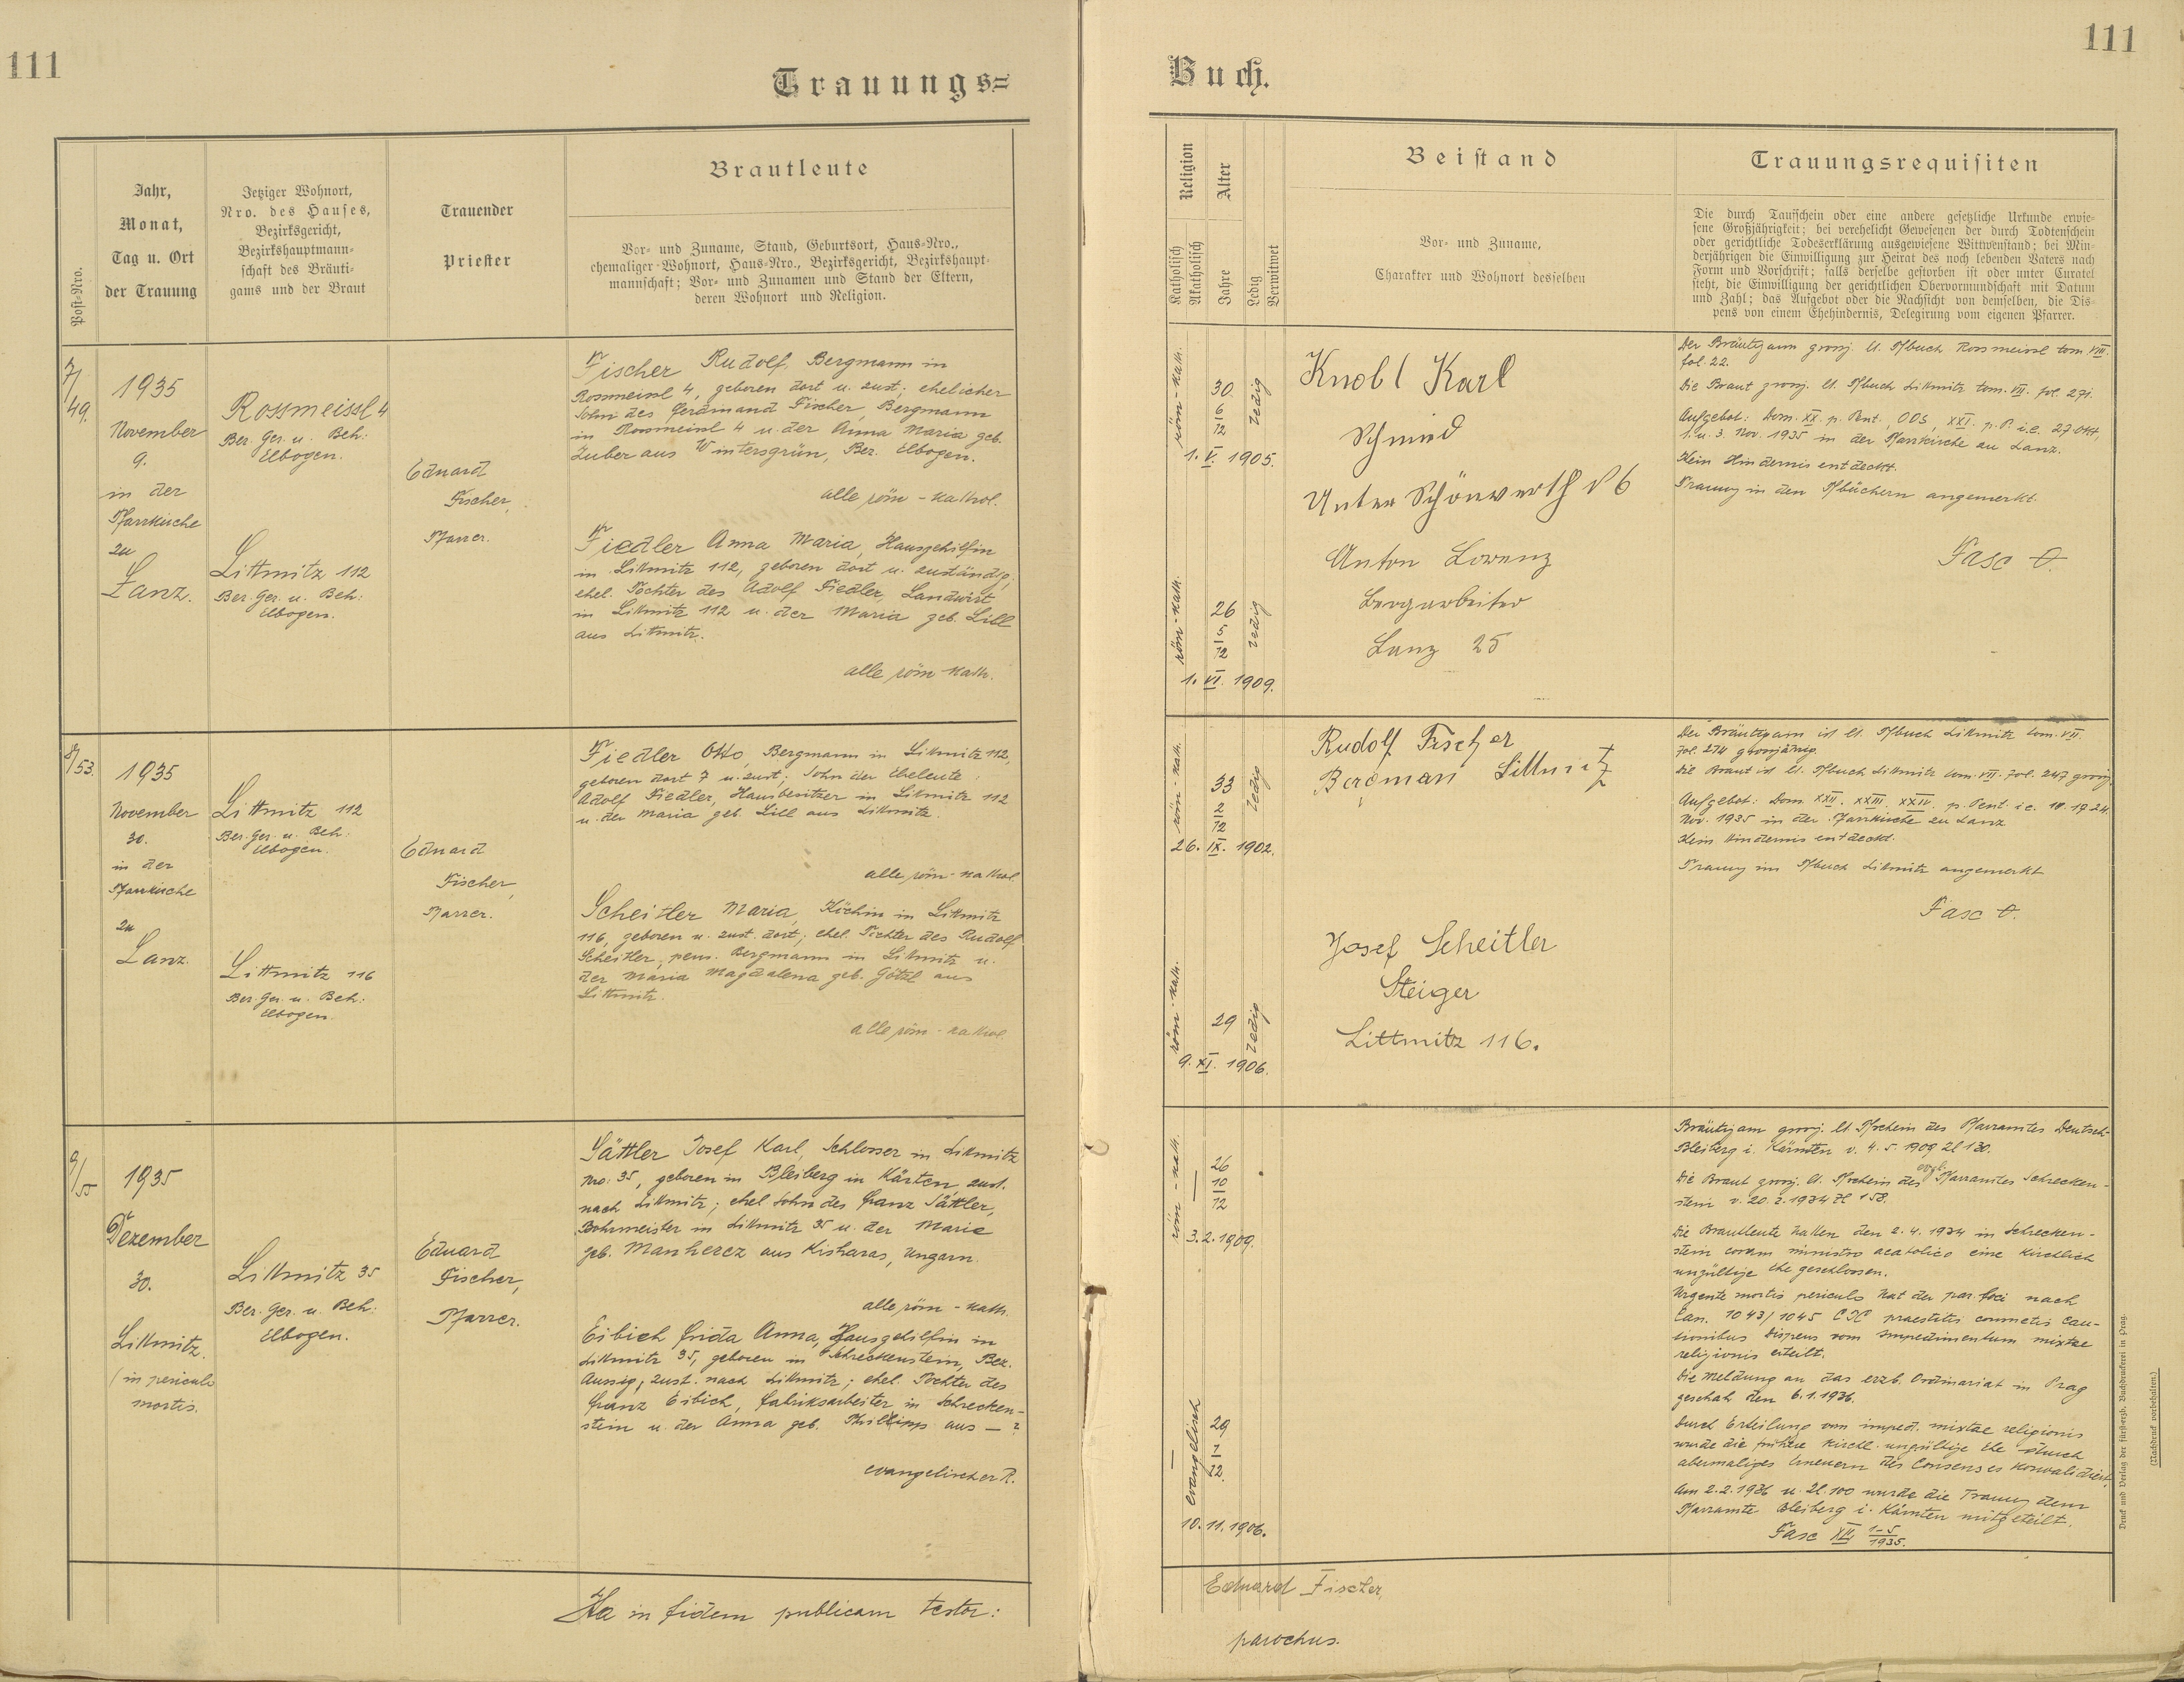 111
Trauungs=
Jahr,
Monat,
Tag u. Ort
der Trauung
Post-Nro.
Jetziger Wohnort,
Nro. des Hauses,
Bezirksgericht,
Bezirkshauptmann-
schaft des Bräuti-
gams und der Braut
Trauender
Priester
Brautleute
Vor- und Zuname, Stand, Geburtsort, Haus-Nro.,
ehemaliger Wohnort, Haus-Nro., Bezirksgericht, Bezirkshaupt-
mannschaft; Vor- und Zunamen und Stand der Eltern,
deren Wohnort und Religion.
7/
49.
1935
November
9.
in der
Pfarrkirche
zu
Lanz.
Rossmeissl 4
Ber. Ger. u. Beh:
Elbogen.
Littmitz 112
Ber. Ger. u. Beh:
Elbogen.
Eduard
Fischer,
Pfarrer.
Fischer Rudolf, Bergmann in
Rossmeissl 4, geboren dort u. zust; ehelicher
Sohn des Ferdinand Fischer, Bergmann
in Rossmeissl 4 u. der Anna Maria geb.
Zuber aus Wintersgrün, Bez. Elbogen.
alle röm-kathol.
Fiedler Anna Maria, Hausgehilfin
in Littmitz 112, geboren dort u. zuständig;
ehel. Tochter des Adolf Fiedler, Landwirt
in Littmitz 112 u. der Maria geb. Lill
aus Littmitz.
alle röm-kath.
8/
53.
1935
November
30.
in der
Pfarrkirche
zu
Lanz.
Littmitz 112
Ber. Ger. u. Beh:
Elbogen.
Littmitz 116
Ber. Ger. u. Beh:
Elbogen.
Eduard
Fischer,
Pfarrer.
Fiedler Otto, Bergmann in Littmitz 112,
geboren dort 7 u. zust; Sohn der Eheleute:
Adolf Fiedler, Hausbesitzer in Littmitz 112
u. der Maria geb. Lill aus Littmitz.
alle röm-kathol.
Scheitler Maria, Köchin in Littmitz
116, geboren u. zust. dort; ehel. Tochter des Rudolf
Scheitler, pens. Bergmann in Littmitz u.
der Maria Magdalena geb. Götzl aus
Littmitz.
alle röm-kathol.
9/
55
1935
Dezember
30.
Littmitz.
(in periculo
mortis.
Littmitz 35
Ber. Ger. u. Beh:
Elbogen.
Eduard
Fischer,
Pfarrer.
Sättler Josef Karl, Schlosser in Littmitz
Nro: 35, geboren in Bleiberg in Kärten zust.
nach Littmitz; ehel Sohn des Franz Sättler,
Bohrmeister in Littmitz 35 u. der Marie
geb. Manhercz aus Kisharas, Ungarn.
alle röm-kath.
Eibich Frida Anna, Hausgehilfin in
Littmitz 35, geboren in Schreckenstein, Bez.
Aussig, zust. nach Littmitz; ehel. Tochter des
Franz Eibich, Fabriksarbeiter in Schrecken-
stein u. der Anna geb. Phillipp aus — ?
evangelischer R.
Ita in fidem publicam testor:
111
Buch.
Religion
Katholisch
Akatholisch
Alter
Jahre
Ledig
Verwitwet
Beistand
Vor- und Zuname,
Charakter und Wohnort desselben
Trauungsrequisiten
Die durch Taufschein oder eine andere gesetzliche Urkunde erwie-
sene Großjährigkeit; bei verehelicht Gewesenen der durch Todtenschein
oder gerichtliche Todeserklärung ausgewiesene Wittwenstand; bei Min-
derjährigen die Einwilligung zur Heirat des noch lebenden Vaters nach
Form und Vorschrift; falls derselbe gestorben ist oder unter Curatel
steht, die Einwilligung der gerichtlichen Obervormundschaft mit Datum
und Zahl; das Aufgebot oder die Nachsicht von demselben, die Dis-
pens von einem Ehehindernis, Delegirung vom eigenen Pfarrer.
röm-kath.
30
6
12
ledig
1. V. 1905.
röm-kath.
26
5
12
ledig
1. VI. 1909.
Knobl Karl
Schmied
Unter Schönwerth No 6
Anton Lorenz
Bergarbeiter
Lanz 25
Der Bräutigam grosj. lt. Tfbuch Rossmeissl tom. VIII.
fol. 22.
Die Braut grosj. lt. Tfbuch Littmitz tom. VII. fol. 271.
Aufgebot: Dom. XX. p. Pent., OOS, XXI. p. P. i.e. 27. Okt,
1. u. 3. Nov. 1935 in der Pfarrkirche zu Lanz.
Kein Hindernis entdeckt.
Trauung in den Tfbüchern angemerkt.
Fasc O.
röm-kath.
33
2
12
ledig
26. IX. 1902.
röm-kath.
29
ledig
9. XI. 1906.
Rudolf Fischer
Bergman Littmitz
Josef Scheitler
Steiger
Littmitz 116.
Der Bräutigam ist lt. Tfbuch Littmitz tom. VII.
fol. 274 grossjährig.
Die Braut ist lt. Tfbuch Littmitz tom. VII. fol. 247 grosj.
Aufgebot: Dom. XXII. XXIII. XXIV. p. Pent. i.e. 10. 17. 24.
Nov. 1935 in der Pfarrkirche zu Lanz
Kein Hindernis entdeckt.
Trauung im Tfbuch Littmitz angemerkt
Fasc O.
röm-kath.
26
10
12
3. 2. 1909.
evangelisch
29
1
12.
10. 11. 1906.
Bräutigam grosj. lt. Tfschein des Pfarramtes Deutsch-
Bleiberg i. Kärnten v. 4. 5. 1909 Zl 130.
Die Braut grosj. lt. Tfschein des evgl. Pfarramtes Schrecken-
stein v. 20. 2. 1934 Zl 158.
Die Brautleute hatten den 2. 4. 1934 in Schrecken-
stein coram ministro acatolico eine kirchlich
ungültige Ehe geschlossen.
Urgente mortis periculo hat der par. loci nach
Can. 1043/1045 CIC praestitis cunnctis cau-
tionibus Dispens vom Impedimentum mixtae
religionis erteilt.
Die Meldung an das erzb. Ordinariat in Prag
geschah den 6. 1. 1936.
Durch Erteilung vom imped. mixtae religionis
wurde die frühere kirchl. ungültige Ehe durch
abermaliges Erneuern des Consenses konvalidiert.
Am 2. 2. 1936 u. Zl. 100 wurde die Trauung dem
Pfarramte Bleiberg i. Kärnten mitgeteilt.
Fasc XII 1-5
1935.
Eduard Fischer,
parochus.
Druck und Verlag der fürst-erzb. Buchdruckerei in Prag.
(Nachdruck vorbehalten.)